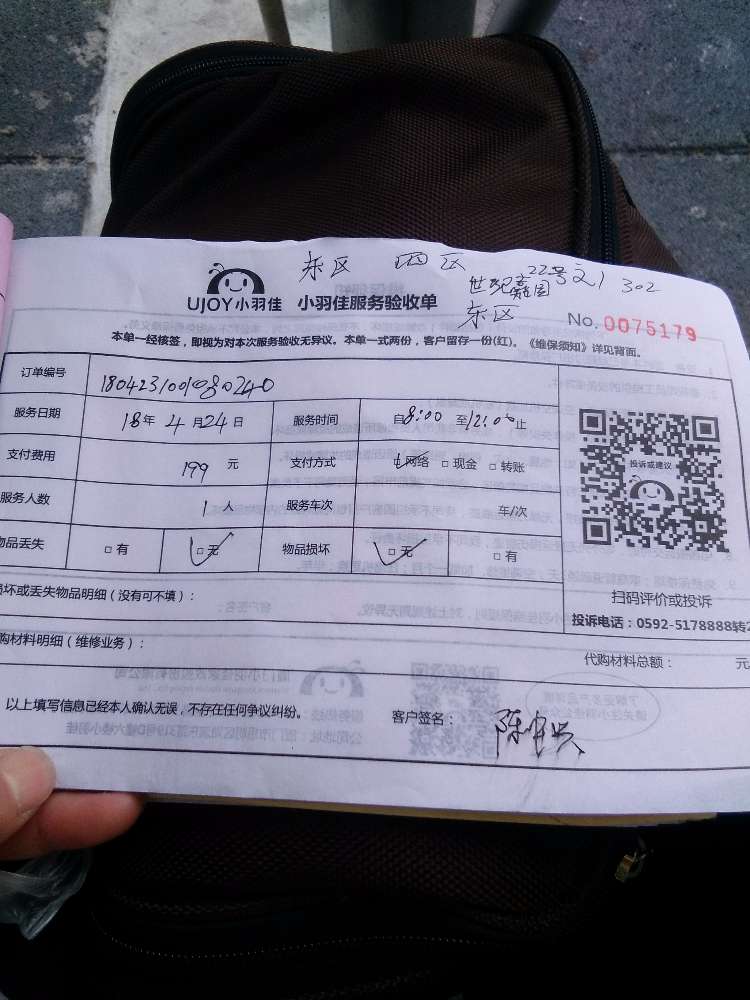 东区 四区 22号之1 302
世纪嘉园
东区
UJOY小羽佳 小羽佳服务验收单
No. 0075179
本单一经核签，即视为对本次服务验收无异议。本单一式两份，客户留存一份(红)。《维保须知》详见背面。
订单编号
服务日期 18年 4月24日 服务时间 自8:00 至12:00止
支付费用 199 元 支付方式 ☑网络 □现金 □转账
服务人数 1人 服务车次 车/次
物品丢失 □有 ☑无 物品损坏 ☑无 □有
投诉或建议
扫码评价或投诉
投诉电话：0592-5178888转2
损坏或丢失物品明细（没有可不填）：
购材料明细（维修业务）：
代购材料总额： 元
以上填写信息已经本人确认无误，不存在任何争议纠纷。
客户签名：